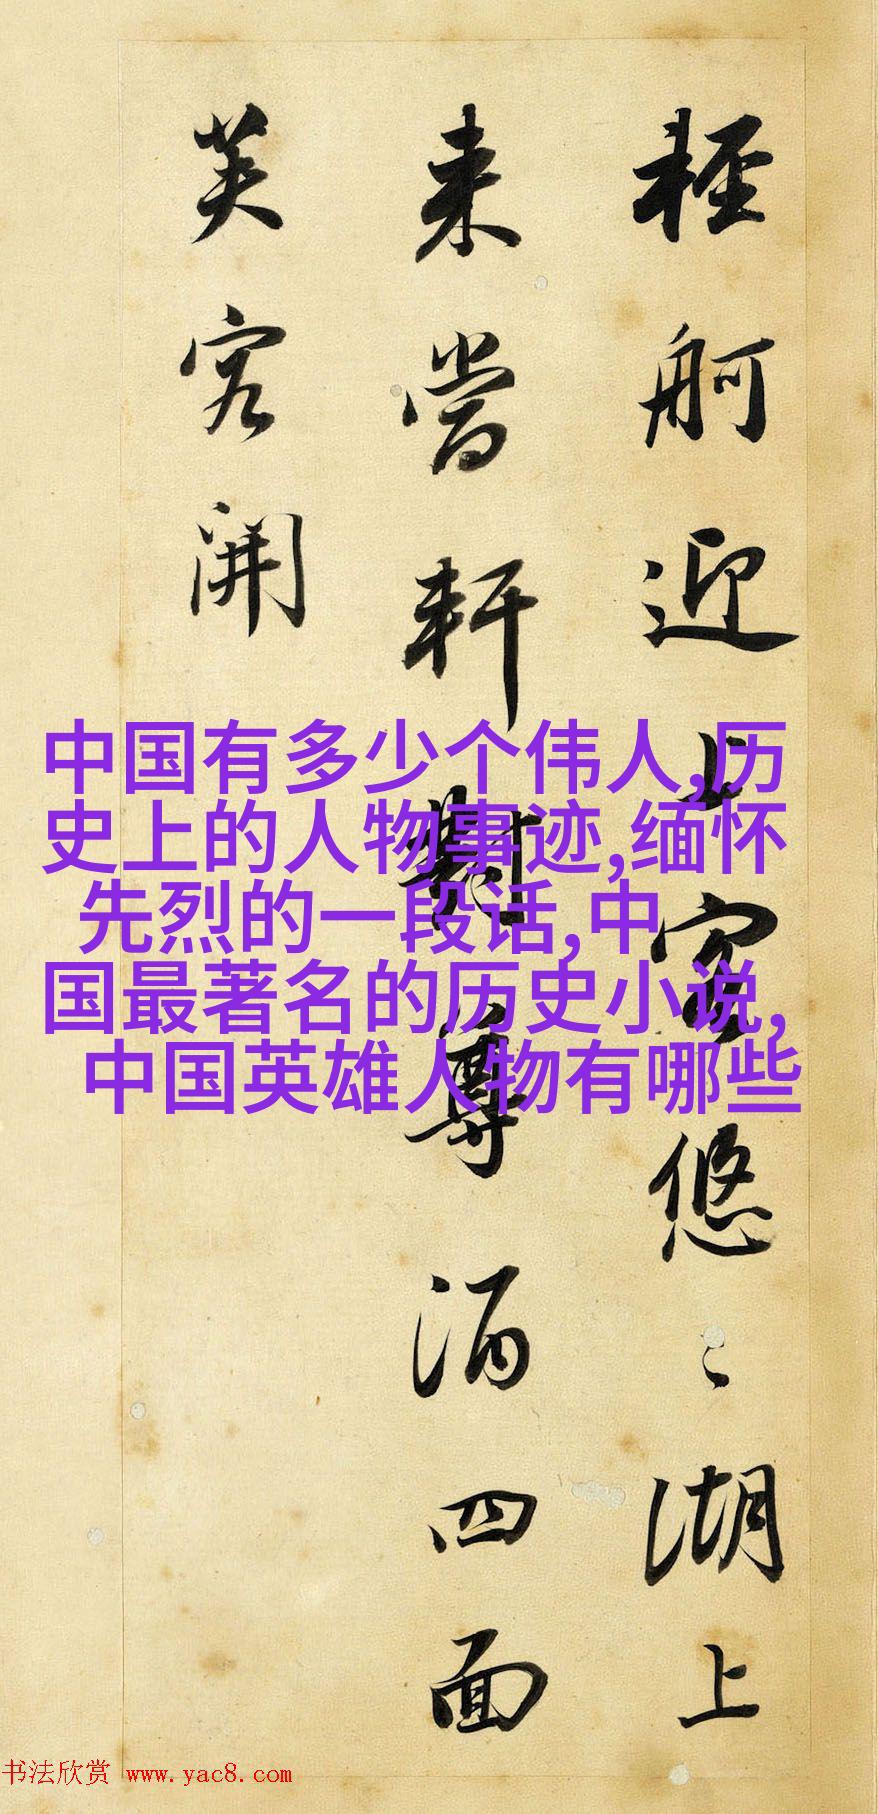 輕舸迎上客悠〻湖上
来當軒對尊酒四面
芙容開
中国有多少个伟人,历
史上的人物事迹,缅怀
先烈的一段话,中
国最著名的历史小说,
中国英雄人物有哪些
书法欣赏 www.yac8.com